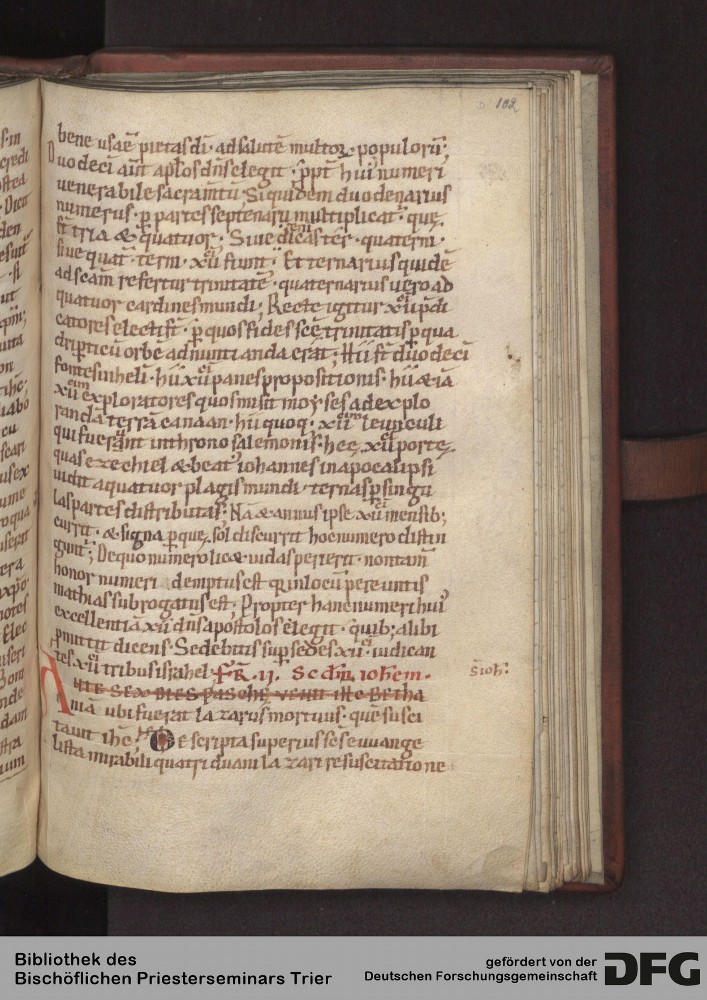 102
bene usaē pietas dī · ad salutē multoꝝ · populorū;
Duodeci aūt aplōs dn̄s elegit · ꝓpt̄ hui᷒ numeri
uenerabile sacram̄tū · Siquidem duodenarius
numerus · ꝑ partes septenarii multiplicat᷒ · que
st̄ tria & quatuor · Siue dicas ter · quaterni ·
siue quat̄ · terni · xii fiunt · Et ternarius quidē
ad scām refertur trinitatē · quaternarius uero ad
quatuor cardines mundi; Recte igitur xii p̄di
catores electi st̄ · ꝑ quos fides scē trinitatis ꝑ qua
dripticū orbē adnuntianda erat; Hii st̄ duodeci
fontes in heli · hii xii panes propositionis · hii & iā
xii exploratores quos misit moyses ad explo
randā terrā canaan · hii quoq · xii leunculi
qui fuerant in throno salemonis · hee xii porte
quas ezechiel & beat᷒ iohannes in apocalipsi
uidit a quatuor plagis mundi · ternas ꝑ singu
las partes distributas; Nā & annus ipse xii mensib;
currit · & signa ꝑ que sol discurrit hoc numero distin
gunt᷒; De quo numero lic& iudas perierit · non tam̄
honor numeri demptus est q in locū pereuntis
mathias subrogatus est · Propter hanc numeri hui᷒
excellentiā xii dn̄s apostolos elegit · quib; alibi
ꝓmittit dicens · Sedebitis sup sedes xii · iudican
tes xii tribus israhel · FR̄ · II · Scdm̄ iohem ·
s̄ ioh̄ ·
ANTE SEX DIES PASCHE VENIT IHC BETHA
niā ubi fuerat lazarus mortuus · quē susci
tauit ihc̄ · De scripta superius sese euuange
lista mirabili quatriduani lazari resuscitatione
Bibliothek des
Bischöflichen Priesterseminars Trier
gefördert von der
Deutschen Forschungsgemeinschaft
DFG